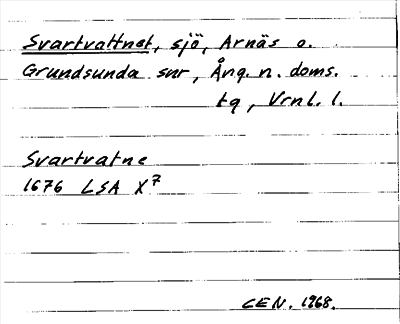 Svartvattnet, sjö, Arnäs o.
Grundsunda snr, Ång. n. doms.
tg, Vrnl. l.
Svartvatne
1676 LSA X⁷
CEN. 1968.